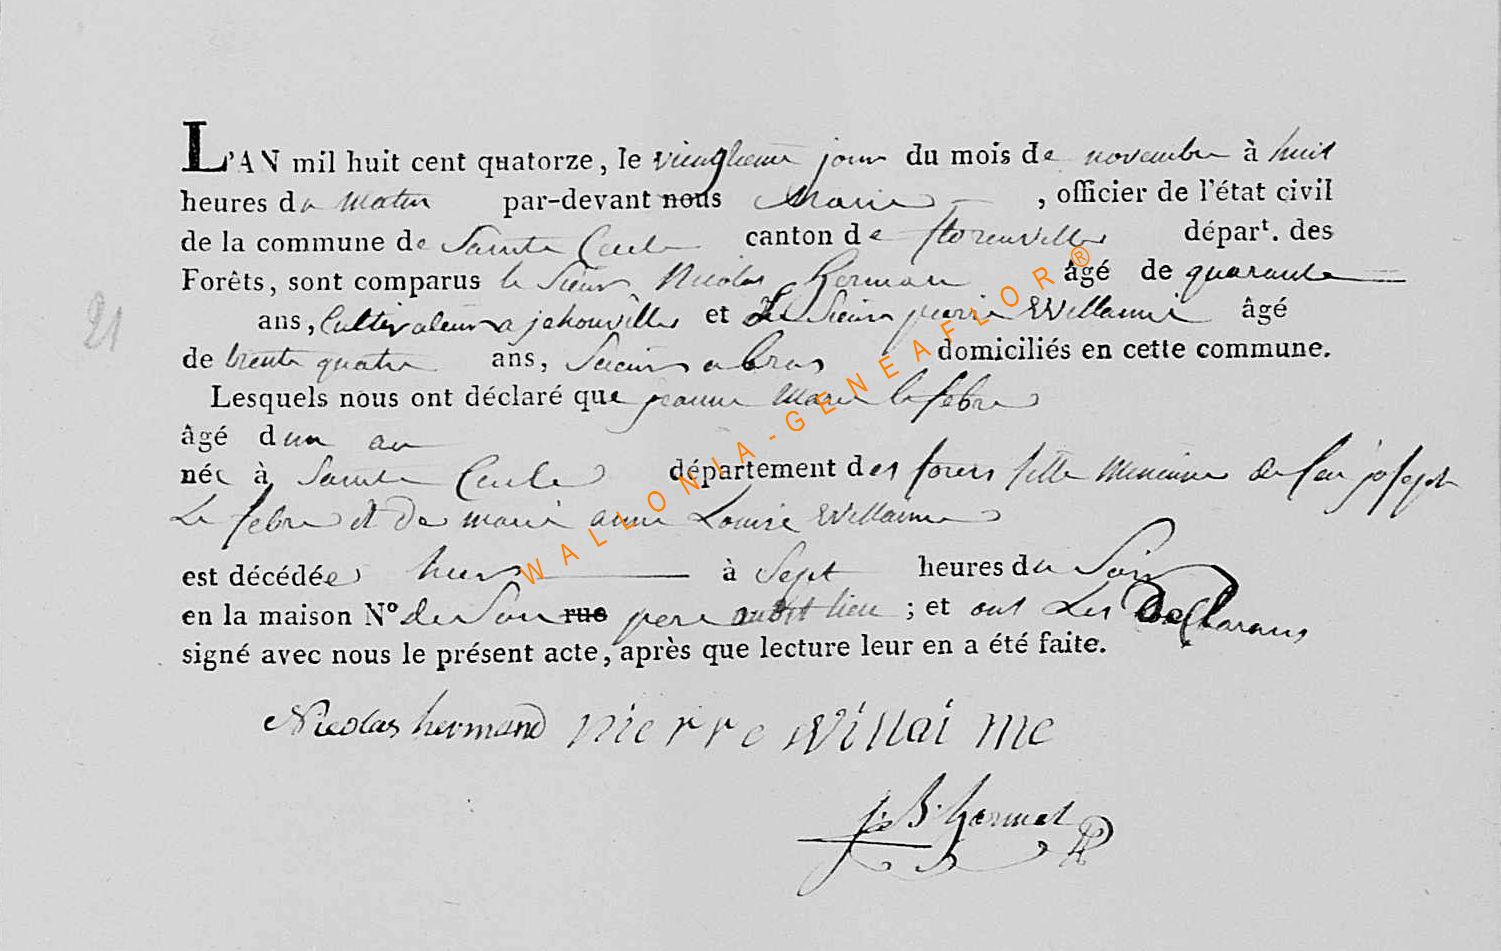 L'AN mil huit cent quatorze, le vingtieme jour du mois de novembre à huit
heures du matin par-devant nous Maire, officier de l'état civil
de la commune de Sainte Cecile canton de florenville départ. des
Forêts, sont comparus le Sieur Nicolas herman âgé de quarante
21
ans, Cultivateur a jahouville et Le Sieur pierre Willaime âgé
de trente quatre ans, Scieur a bras domiciliés en cette commune.
Lesquels nous ont déclaré que jeanne Marie le febre
âgé d'un an
née à Sainte Cecile département des forets fille mineure de feu joseph
Le febre et de marie anne Louise Willaime
est décédée hier à Sept heures du Soir
en la maison N° de Son rue pere audit lieu ; et ont Les Declarans
signé avec nous le présent acte, après que lecture leur en a été faite.
Nicolas hermand pierre Willai me
j. B. 
WALLONIA-GENEAFLOR®